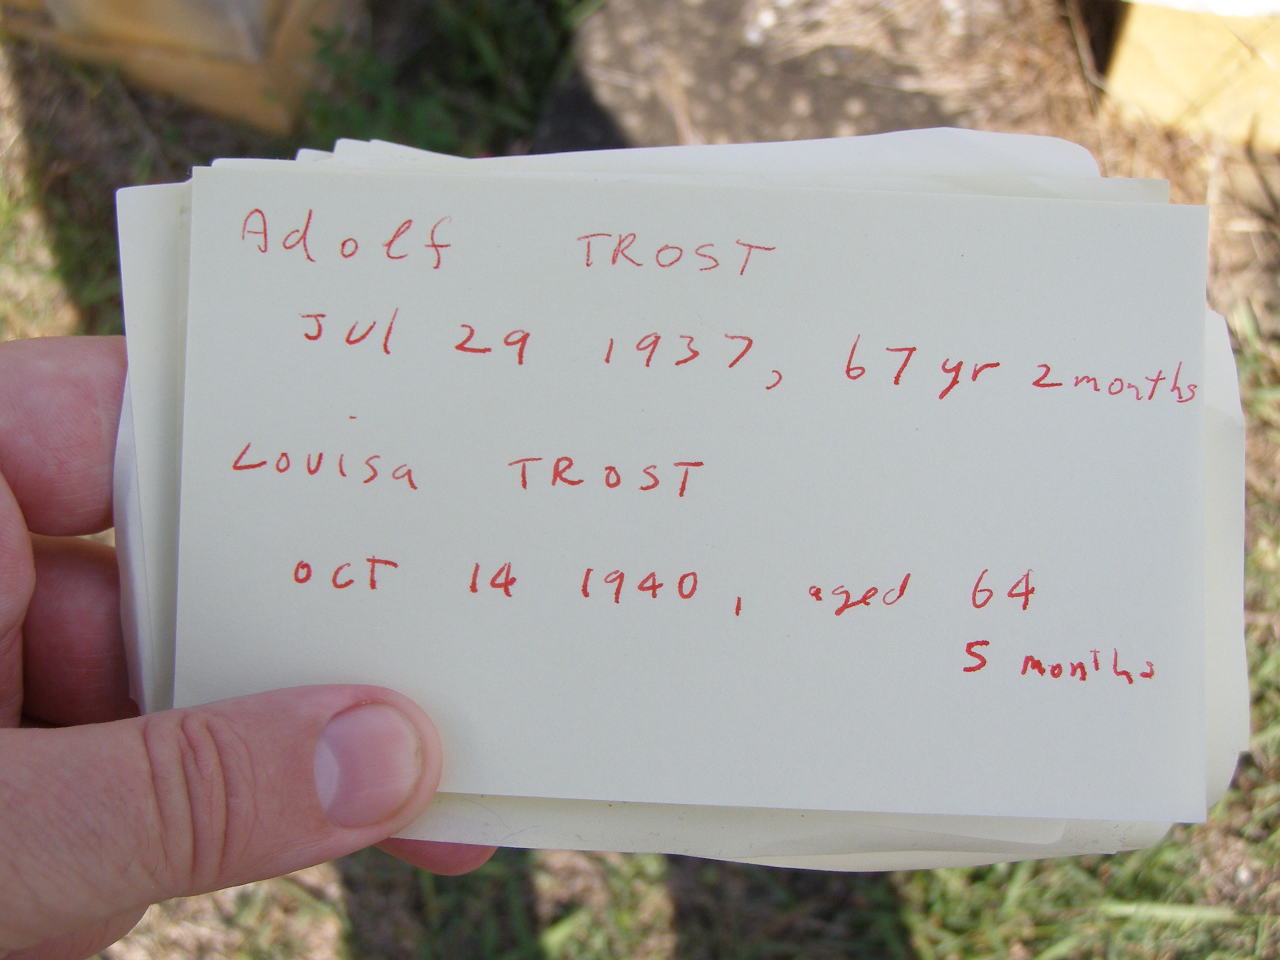 Adolf TROST
Jul 29 1937, 67 yr 2 months
Louisa TROST
OCT 14 1940, aged 64
5 months